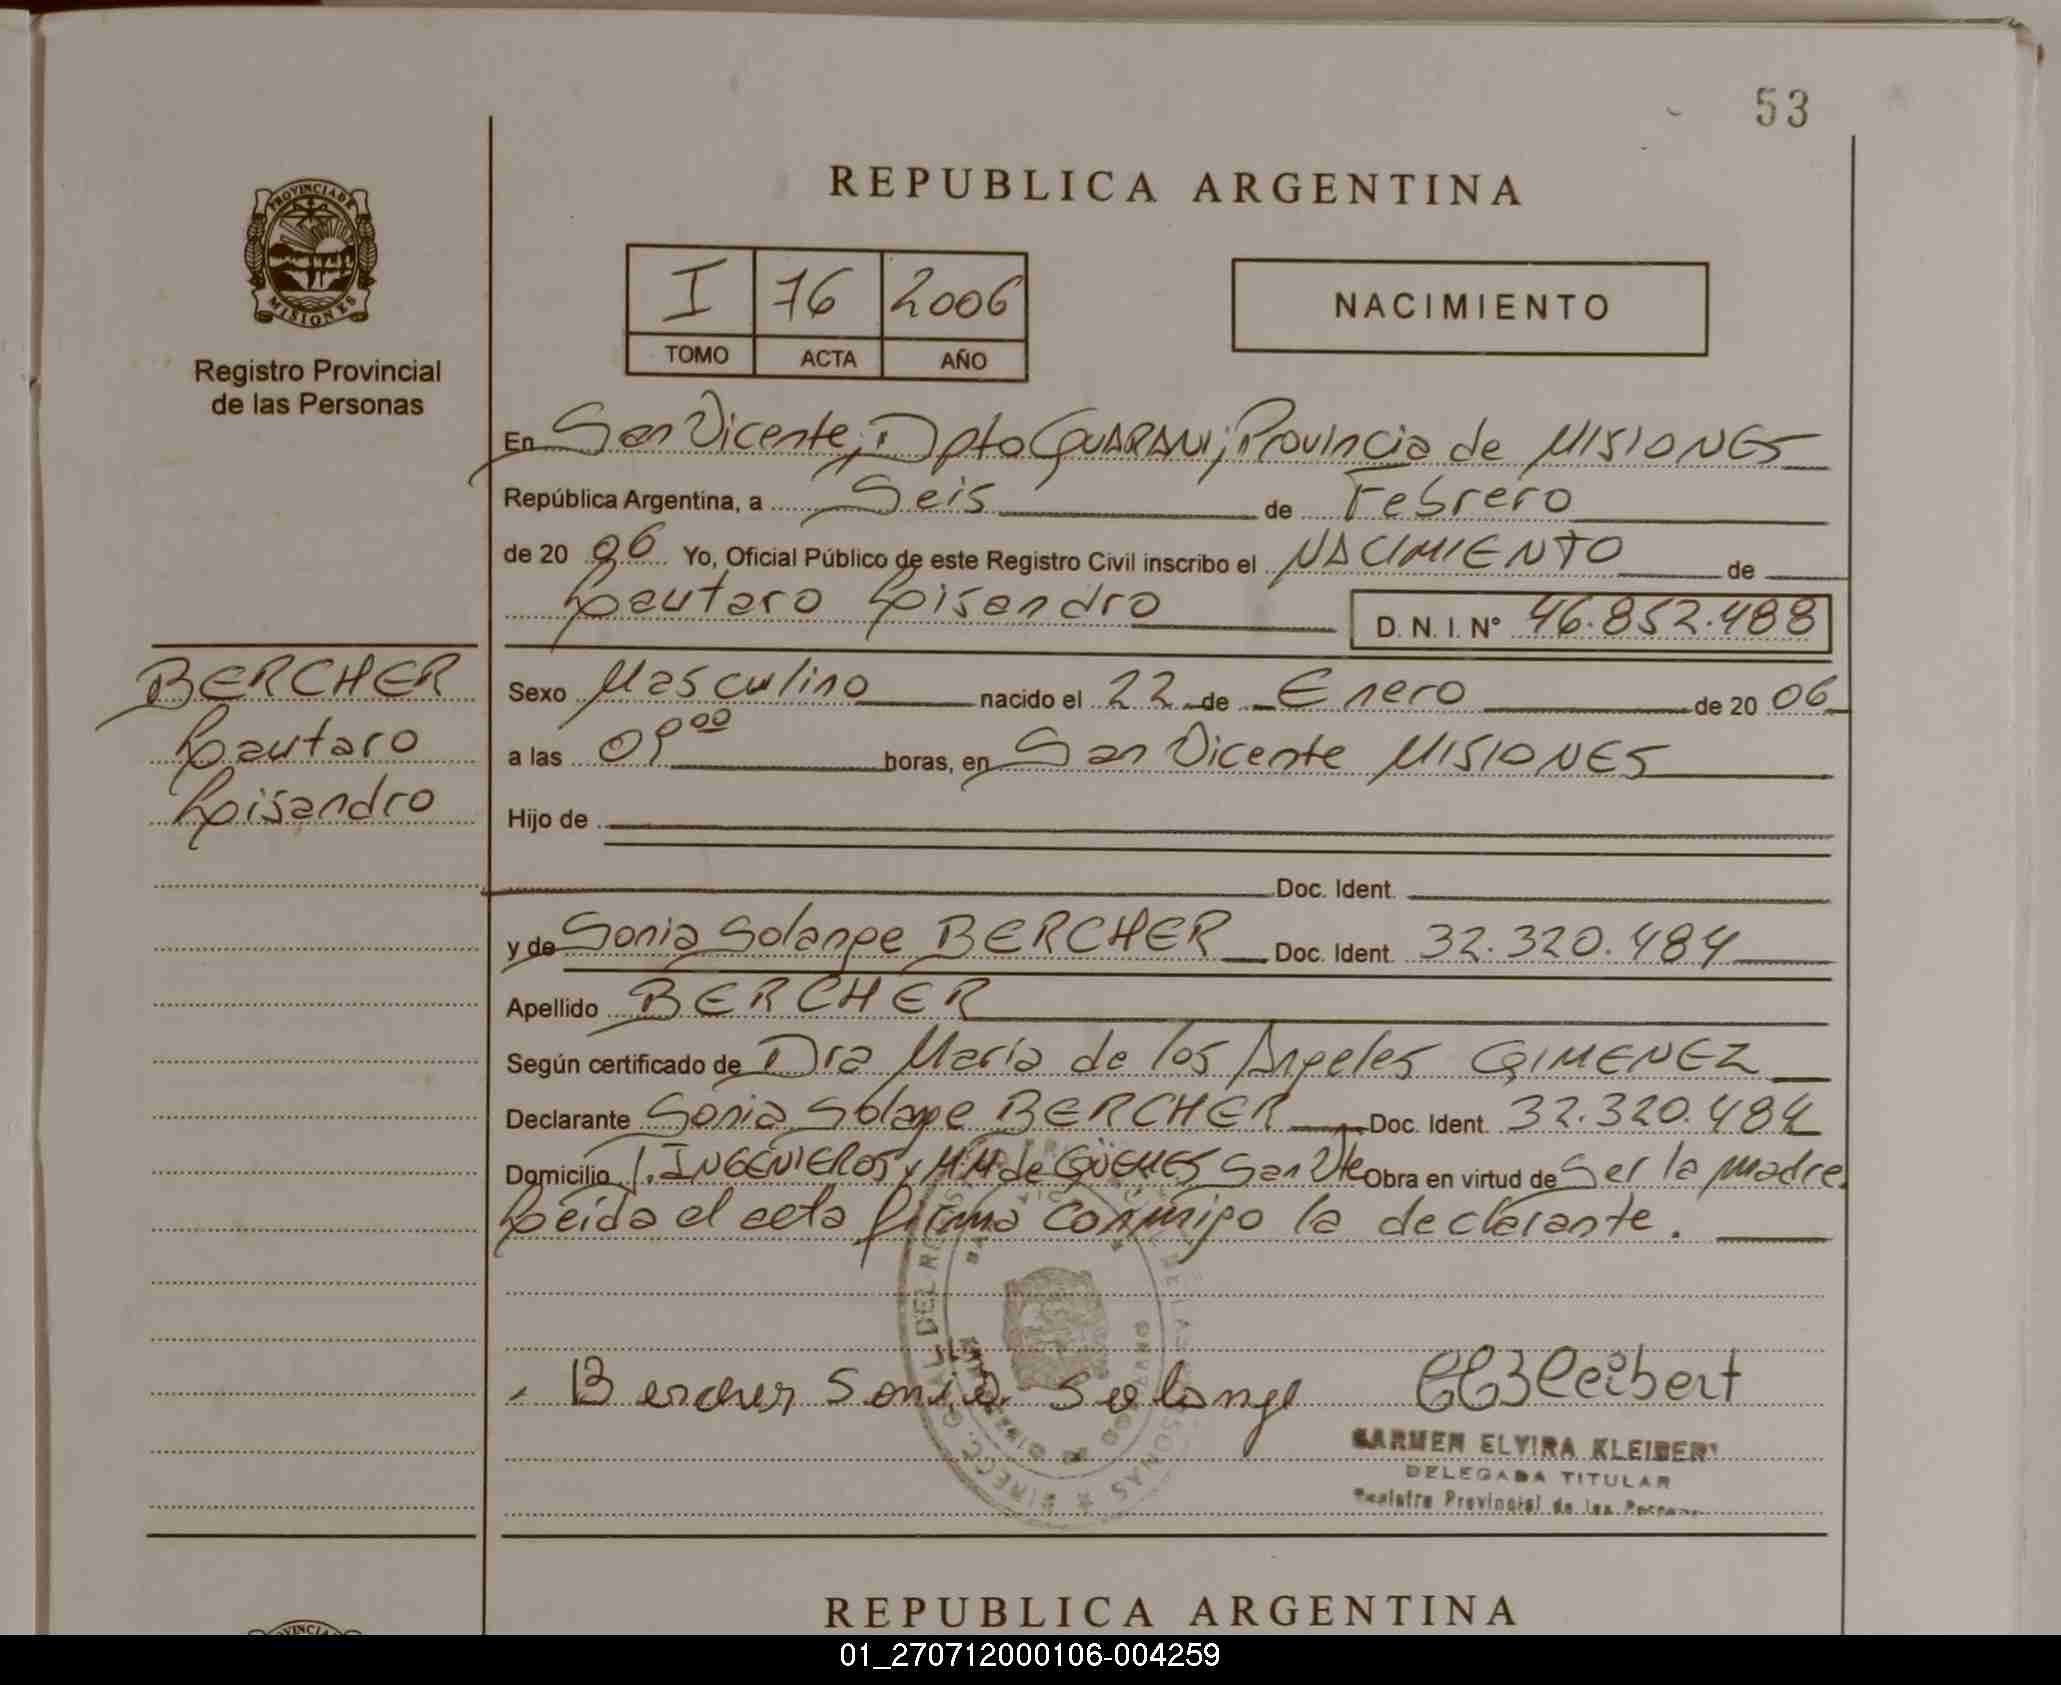 53
REPUBLICA ARGENTINA
PROVINCIA DE
MISIONES
Registro Provincial
de las Personas
I 76 2006
TOMO ACTA AÑO
NACIMIENTO
En San Vicente, Dpto GUARANI, Provincia de MISIONES
República Argentina, a Seis de Febrero
de 20 06 Yo, Oficial Público de este Registro Civil inscribo el NACIMIENTO de
Lautaro Lisandro D. N. I. Nº 46.852.488
BERCHER
Lautaro
Lisandro
Sexo Masculino nacido el 22 de Enero de 20 06
a las 09⁰⁰ horas, en San Vicente MISIONES
Hijo de
Doc. Ident.
y de Sonia Solange BERCHER Doc. Ident. 32.320.484
Apellido BERCHER
Según certificado de Dra María de los Angeles GIMENEZ
Declarante Sonia Solange BERCHER Doc. Ident. 32.320.484
Domicilio J. INGENIEROS y M.M de GÜEMES San Vte Obra en virtud de Ser la madre.
Leída el acta firma conmigo la declarante.
Bercher Sonia Solange
CARMEN ELVIRA KLEIBERT
DELEGADA TITULAR
Registro Provincial de las Personas
REPUBLICA ARGENTINA
01_270712000106-004259